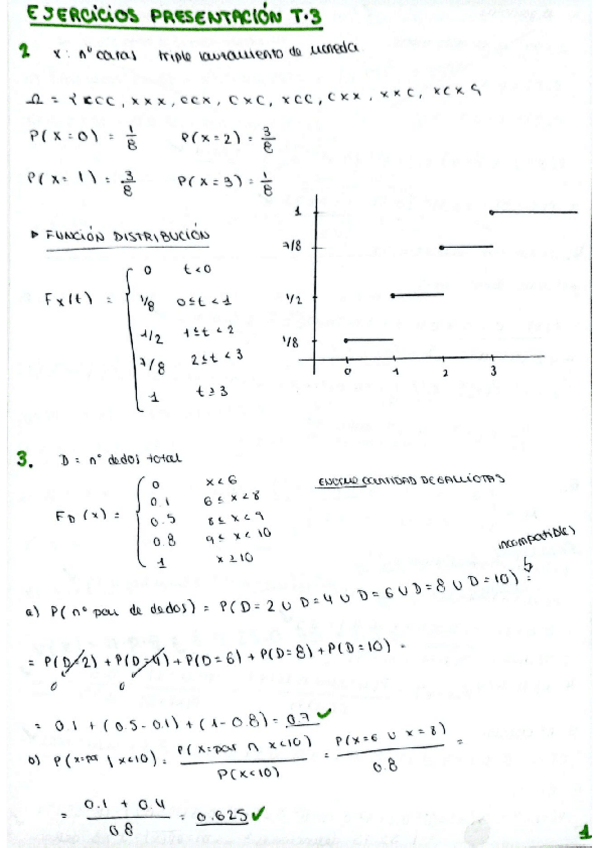 EJERCICIOS PRESENTACIÓN T.3
2 X: nº caras triple lanzamiento de moneda
Ω = {CCC, XXX, CCX, CXC, XCC, CXX, XXC, XCX}
P(X=0) = 1/8 P(X=2) = 3/8
P(X=1) = 3/8 P(X=3) = 1/8
▸ FUNCIÓN DISTRIBUCIÓN
F_X(t) = { 0 t<0
1/8 0≤t<1
1/2 1≤t<2
7/8 2≤t<3
1 t≥3
1
7/8
1/2
1/8
0 1 2 3
3. D = nº dedos total
F_D(x) = { 0 x<6
0.1 6≤x<8
0.5 8≤x<9
0.8 9≤x<10
1 x≥10
CANTIDAD DE GALLIOTAS
incompatibles
a) P(nº par de dedos) = P(D=2 ∪ D=4 ∪ D=6 ∪ D=8 ∪ D=10) =
= P(D=2) + P(D=4) + P(D=6) + P(D=8) + P(D=10) =
0 0
= 0.1 + (0.5-0.1) + (1-0.8) = 0.7 ✓
b) P(x=par | x<10) = P(x=par ∩ x<10) / P(x<10) = P(x=6 ∪ x=8) / 0.8 =
= 0.1 + 0.4 / 0.8 = 0.625 ✓
1